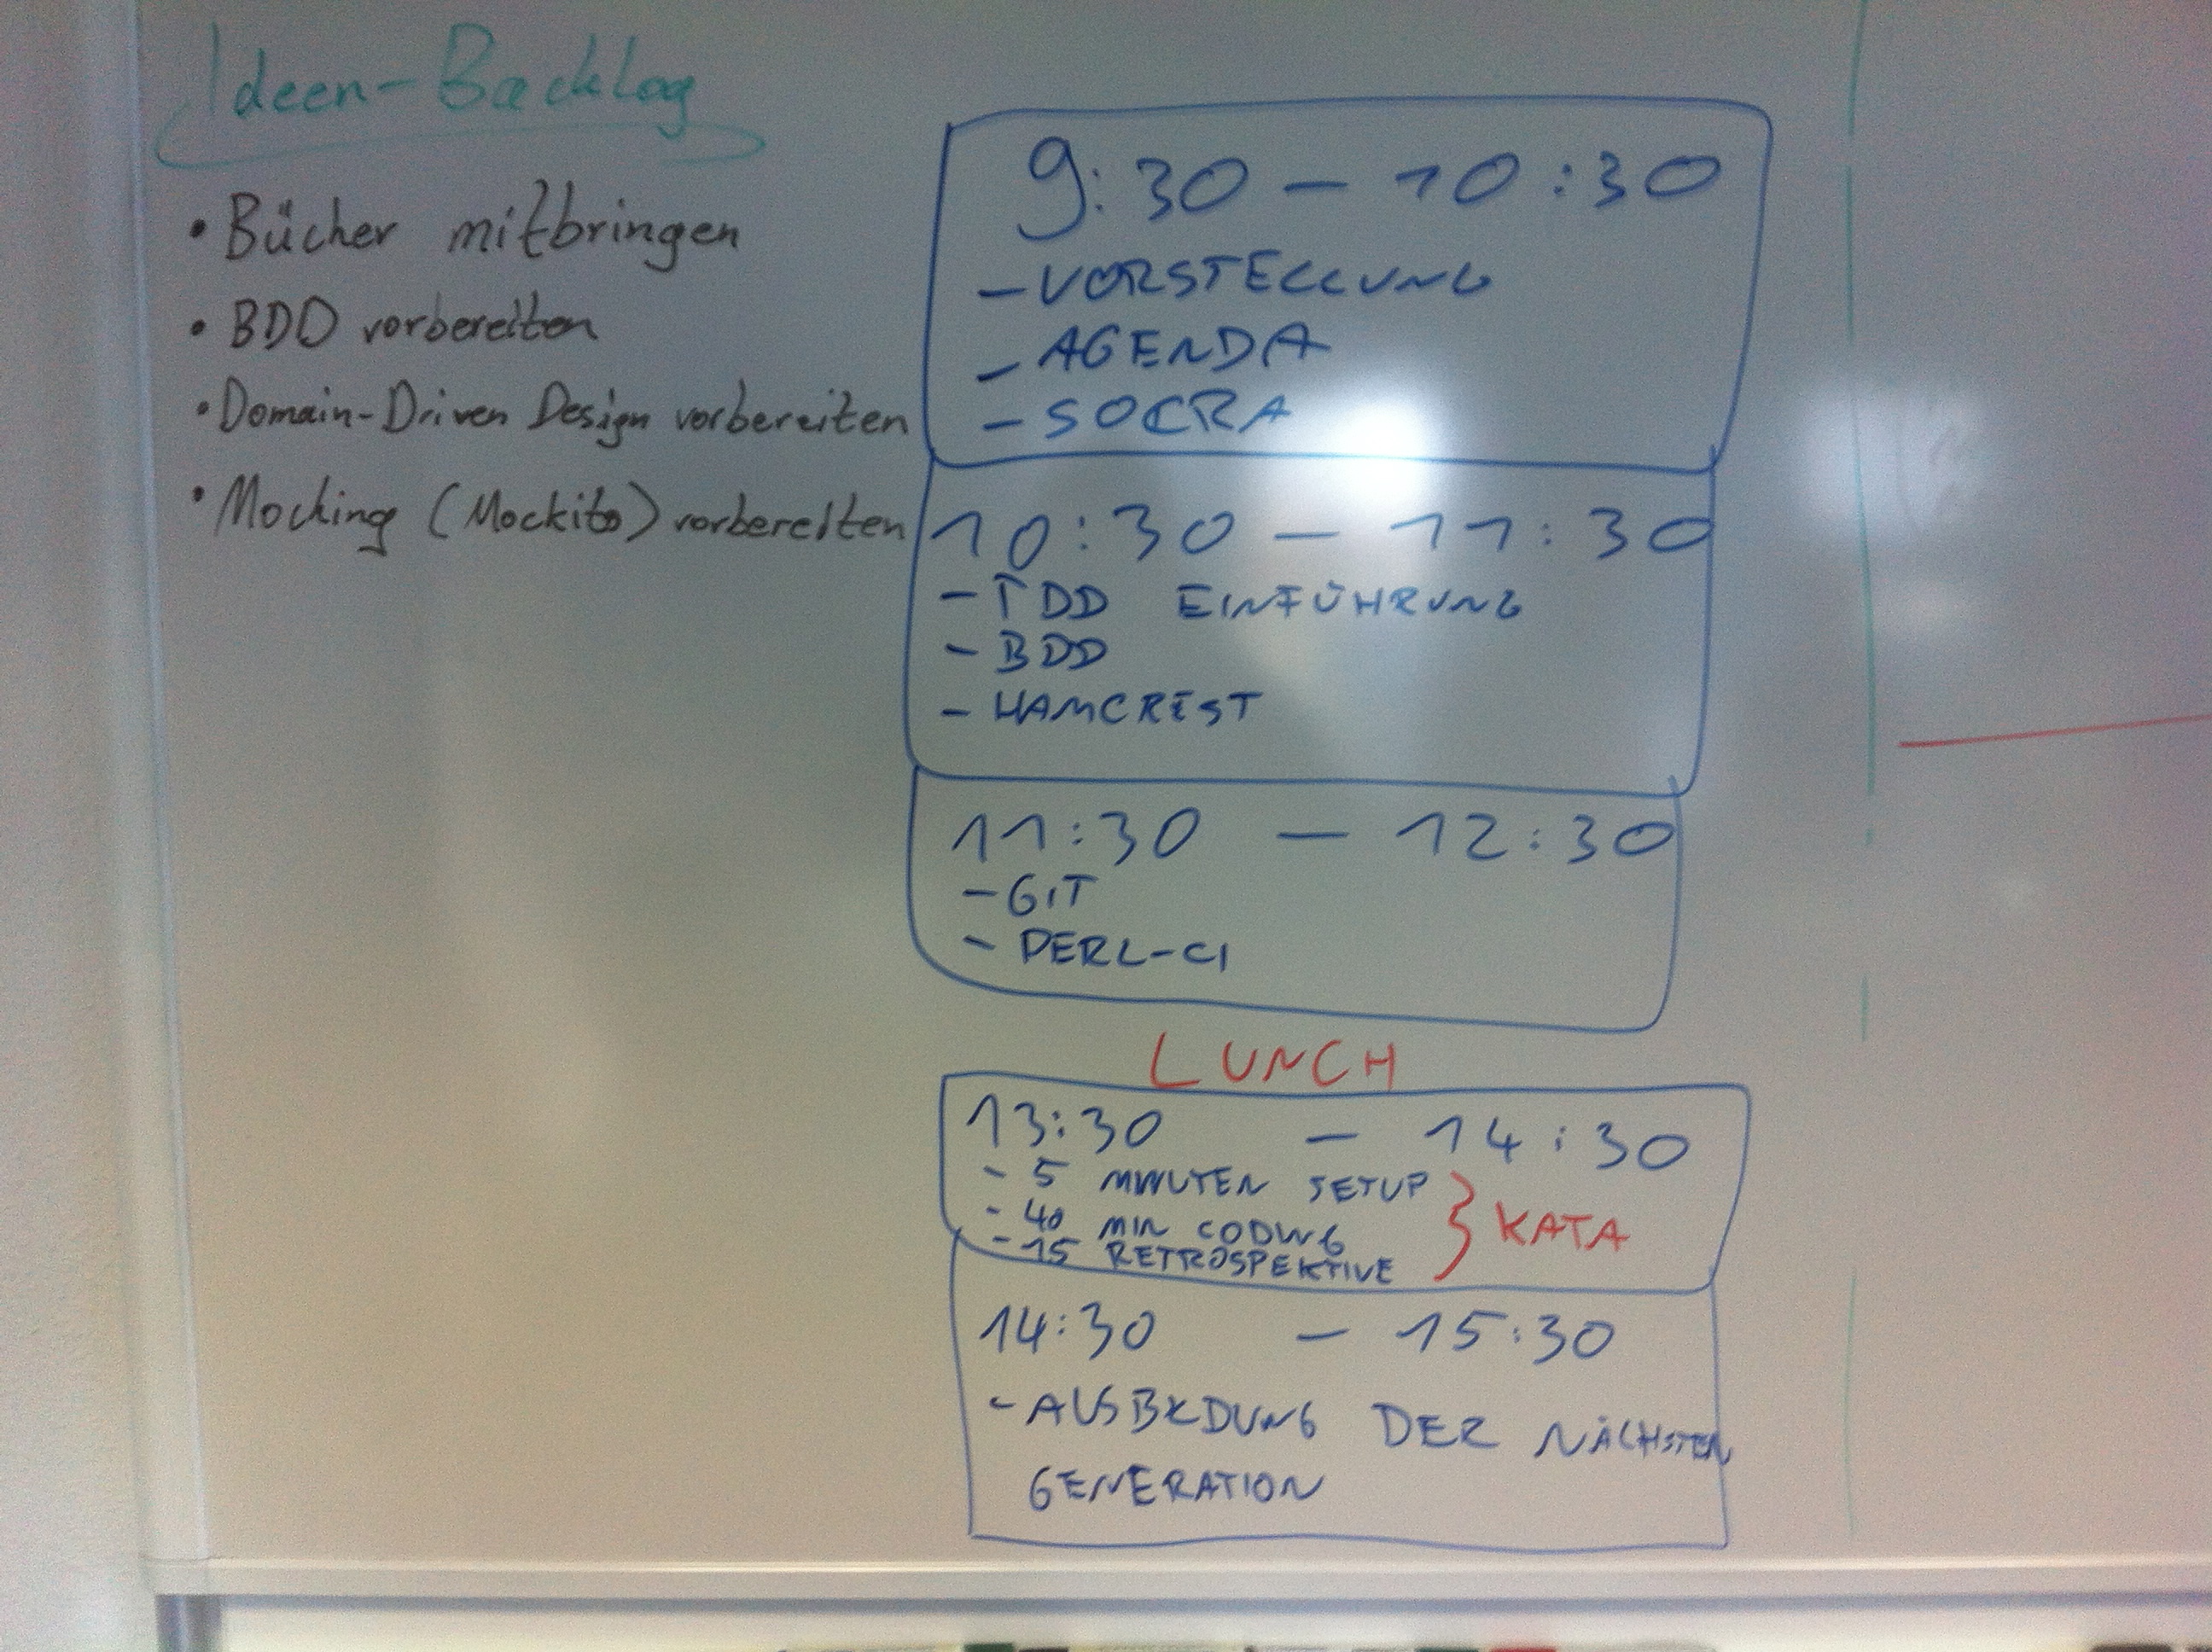 Ideen-Backlog
• Bücher mitbringen
• BDD vorbereiten
• Domain-Driven Design vorbereiten
• Mocking (Mockito) vorbereiten
9:30 – 10:30
– VORSTELLUNG
– AGENDA
– SOCRA
10:30 – 11:30
– TDD EINFÜHRUNG
– BDD
– HAMCREST
11:30 – 12:30
– GIT
– PERL-CI
LUNCH
13:30 – 14:30
– 5 MINUTEN SETUP
– 40 MIN CODING
– 15 RETROSPEKTIVE
} KATA
14:30 – 15:30
– AUSBILDUNG DER NÄCHSTEN
GENERATION